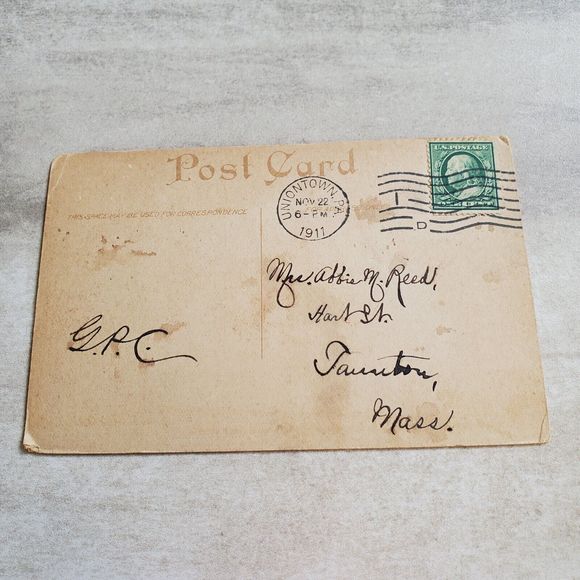 Post Card
THIS SPACE MAY BE USED FOR CORRESPONDENCE
UNIONTOWN, PA.
NOV 22
6-PM
1911
1
D
U.S. POSTAGE
G.P.C.
Mrs. Abbie M. Reed,
Hart St.
Taunton,
Mass.